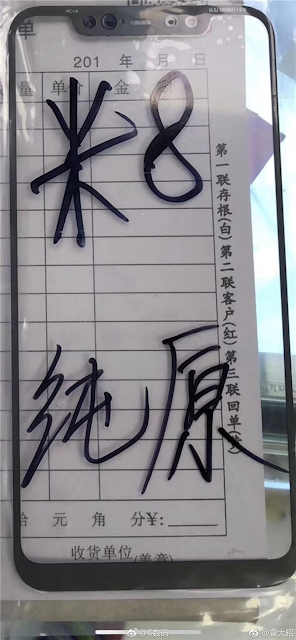 单
201 年 月 日
量 单价 金
米8
纯原
第一联存根(白)第二联客户(红)第三联回单
元 角 分¥:
收货单位(盖章)